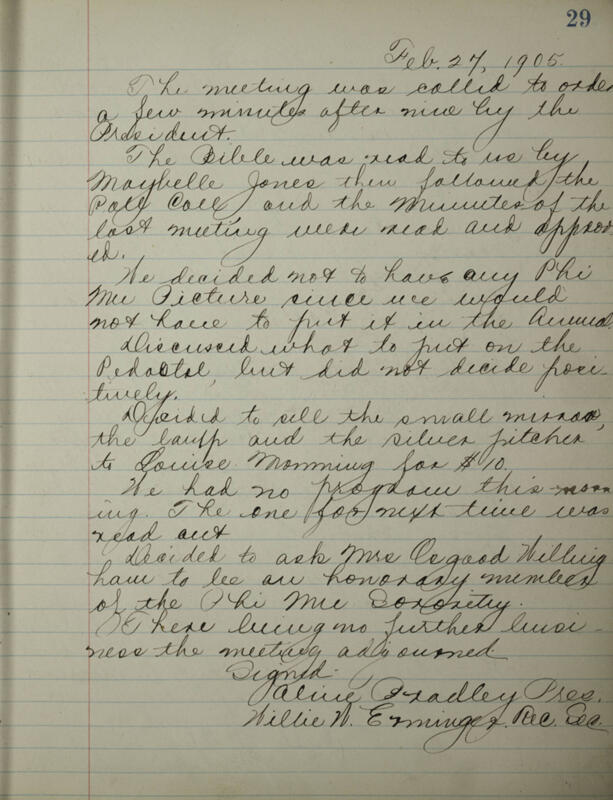 29
Feb. 27, 1905.
The meeting was called to order
a few minutes after nine by the
President.
The Bible was read to us by
Maybelle Jones then followed the
Roll Call and the Minutes of the
last meeting were read and approv-
ed.
We decided not to have any Phi
Mu Picture since we would
not have to put it in the Annual.
Discused what to put on the
Pedastal, but did not decide posi-
tively.
Decided to sell the small mirror,
the lamp and the silver pitcher
to Louise Monning for $10.
We had no program this morn-
ing. The one for next time was
read out
Decided to ask Mrs Osgood Willing
ham to be an honorary member
of the Phi Mu Sorority.
There being no further busi-
ness the meeting adjourned
Signed.
Aline Bradley Pres.
Willie W. Erminger. Rec. Sec.